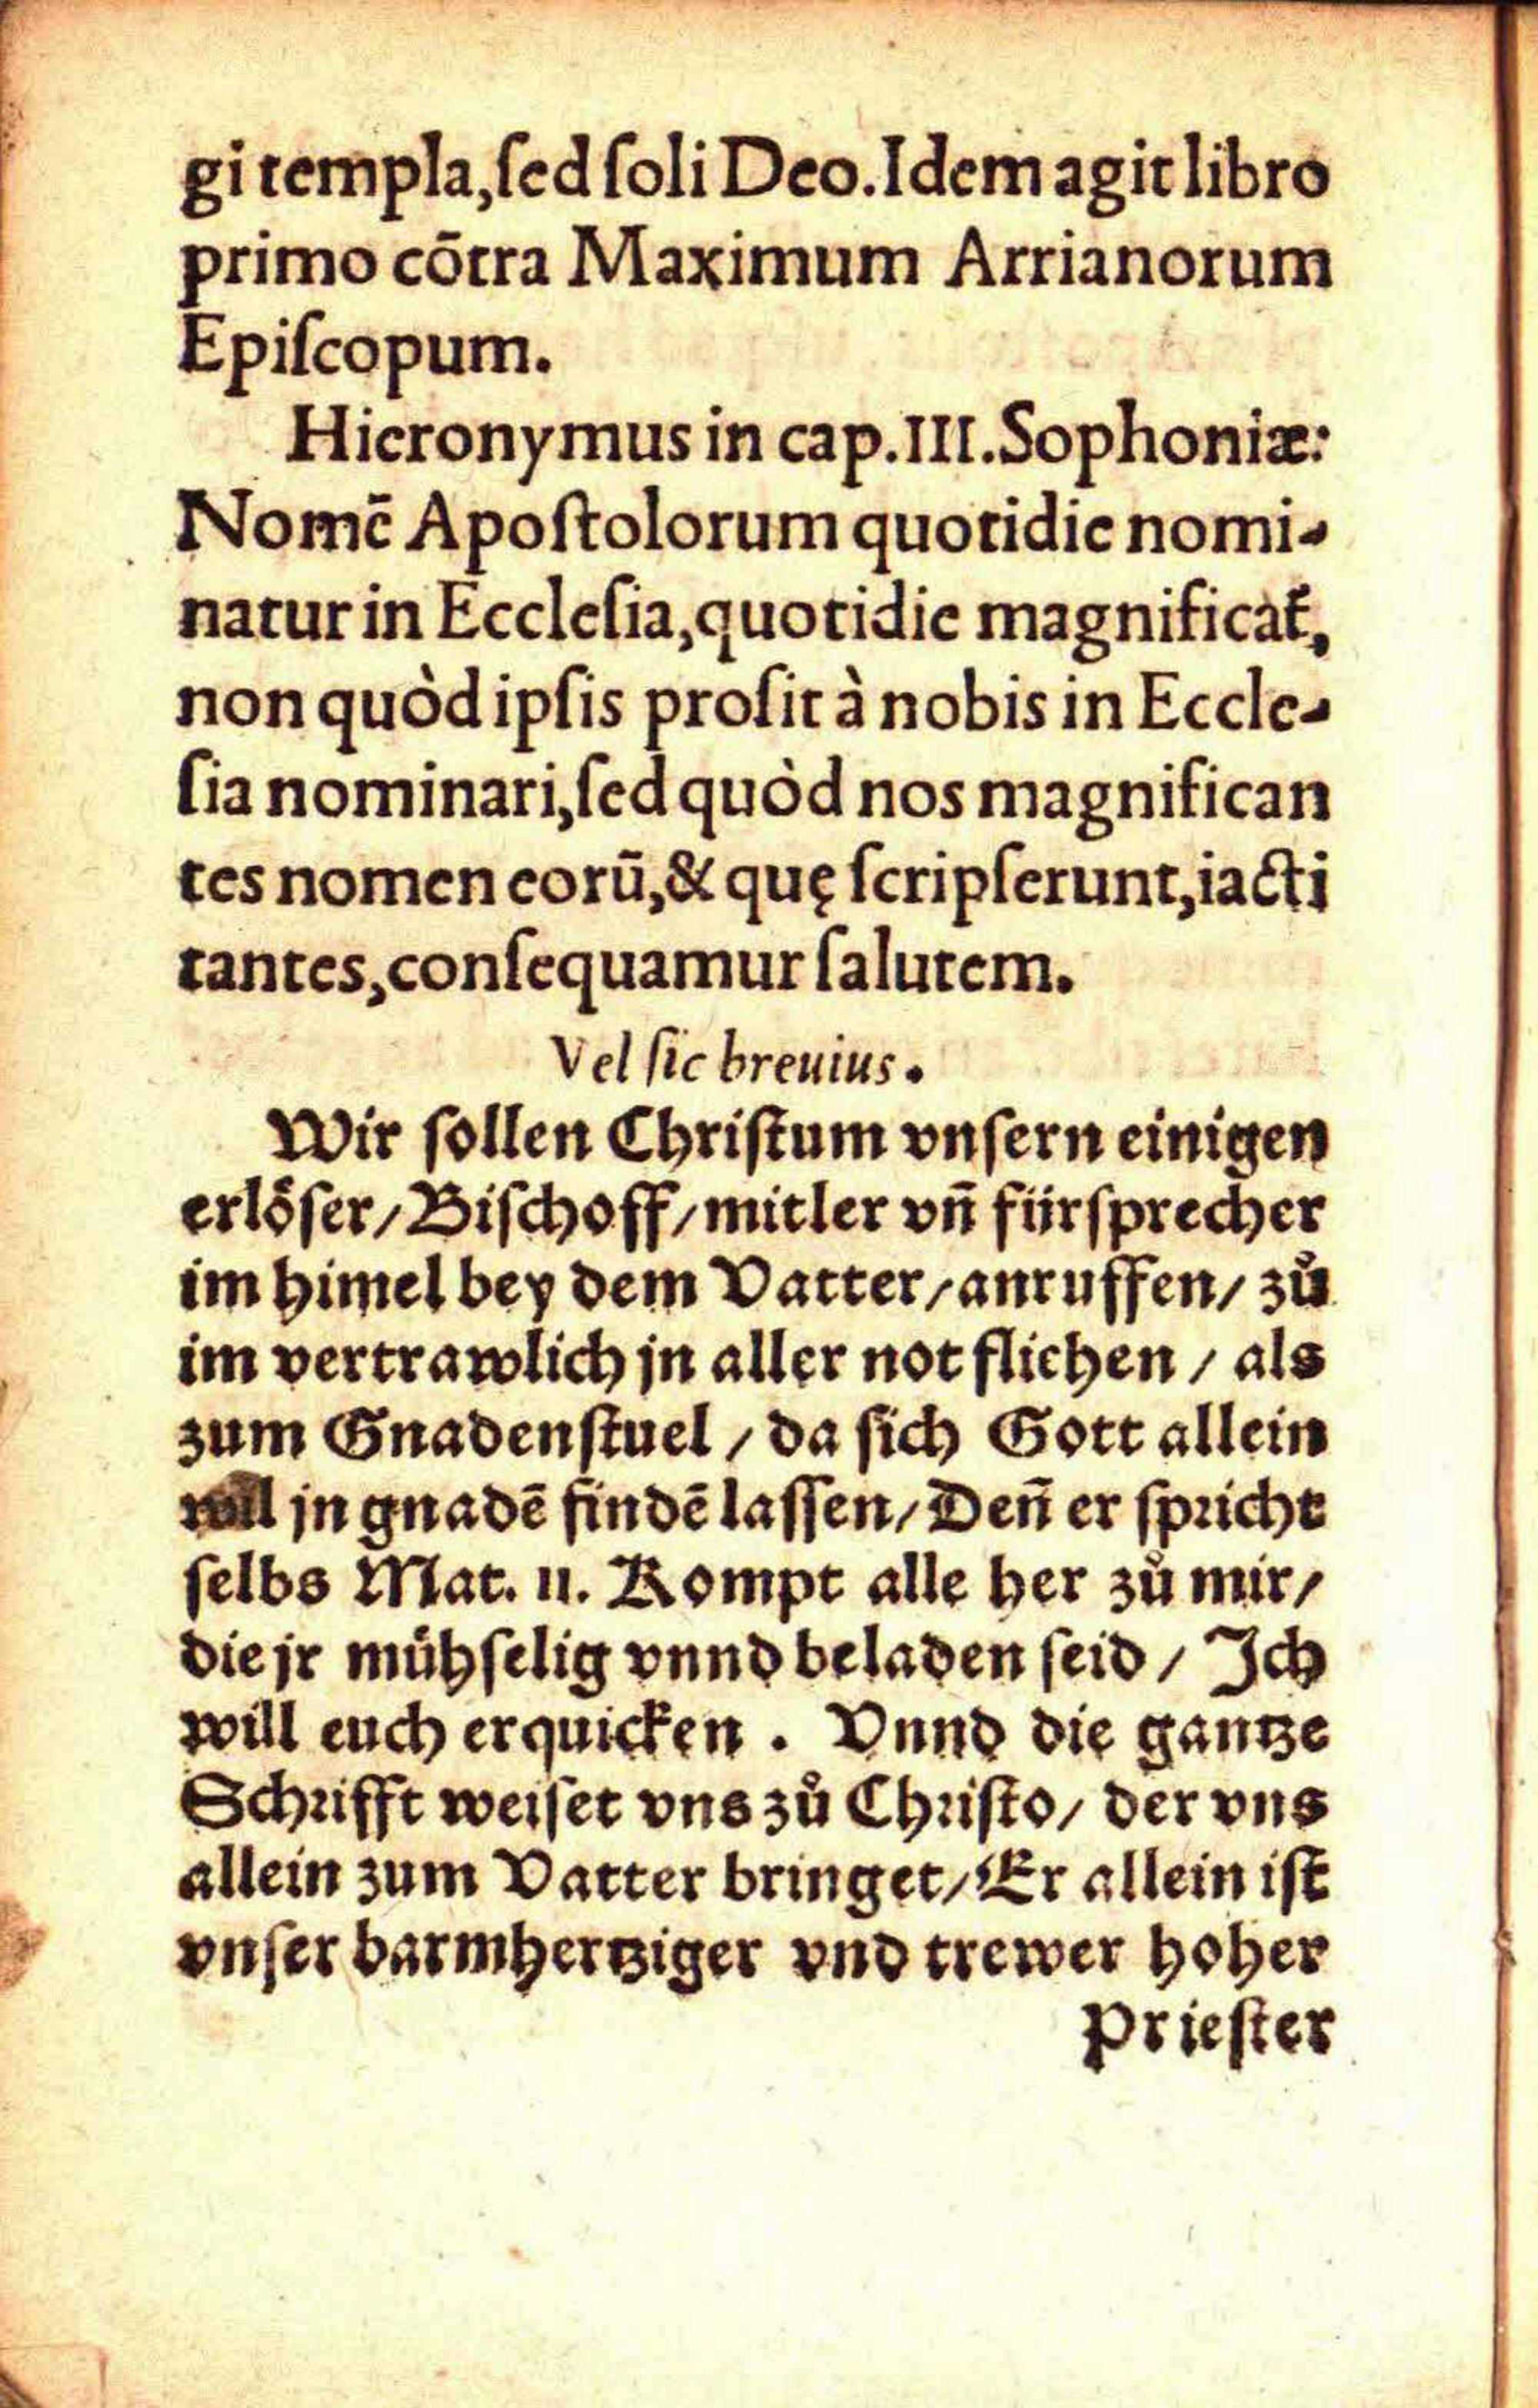 gi templa,ſed ſoli Deo.Idem agit libro
primo cōtra Maximum Arrianorum
Epiſcopum.
Hieronymus in cap.III.Sophoniæ:
Nomē Apoſtolorum quotidie nomi-
natur in Eccleſia,quotidie magnificat᷑,
non quòd ipſis proſit à nobis in Eccle-
ſia nominari,ſed quòd nos magnifican
tes nomen eorū,& quę ſcripſerunt,iacti
tantes,conſequamur ſalutem.
Vel ſic breuius.
Wir ſollen Chriſtum vnſern einigen
erlöſer/Biſchoff/mitler vn̄ fürſprecher
im him̄el bey dem Vatter/anruffen/ zů
im vertrawlich jn aller not fliehen / als
zum Gnadenſtuel / da ſich Gott allein
will jn gnadē findē laſſen/Den̄ er ſpricht
ſelbs Mat. 11. Kompt alle her zů mir/
die jr mühſelig vnnd beladen ſeid / Ich
will euch erquicken . Vnnd die gantze
Schrifft weiſet vns zů Chriſto/ der vns
allein zum Vatter bringet/Er allein iſt
vnſer barmhertziger vnd trewer hoher
Prieſter